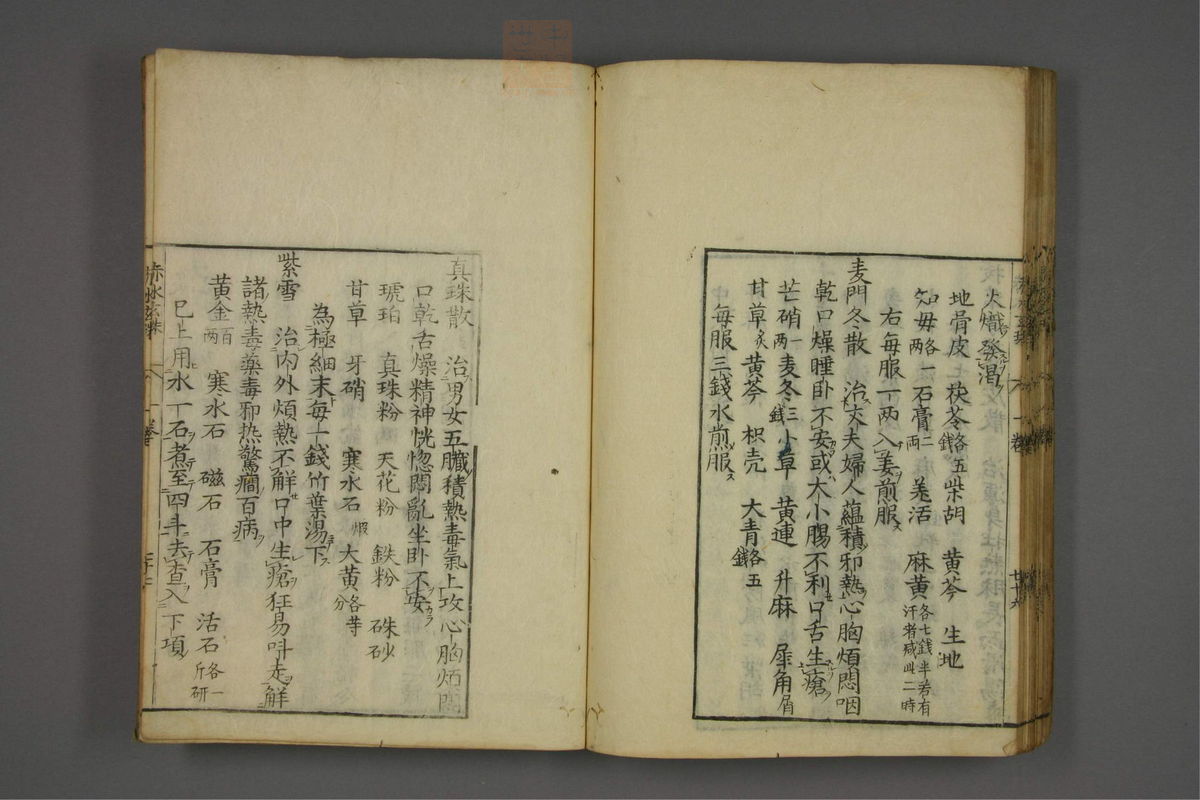 火熾發渇
地骨皮 茯苓各五錢 柴胡 黄芩 生地
知毋各一兩 石膏二兩 羗活 麻黄各七錢半若有汗者减此二時
右毎服一兩入姜煎服
麦門冬散 治丈夫婦人蘊積邪熱心胸煩悶咽
乾口燥睡卧不安或大小腸不利口舌生瘡
芒硝一兩 麦冬三錢 小草 黄連 升麻 犀角屑
甘草炙 黄芩 枳壳 大青各五錢
毎服三錢水煎服
真珠散 治男女五臓積熱毒氣上攻心胸煩悶
口乾舌燥精神恍惚悶亂坐卧不安
琥珀 真珠粉 天花粉 鉄粉 硃砂
甘草 牙硝 寒水石煅 大黄各等分
為極細末毎一錢竹葉湯下
紫雪 治内外煩熱不解口中生瘡狂易呌走解
諸熱毒薬毒邪热驚癎百病
黄金百兩 寒水石 磁石 石膏 活石各一斤研
已上用水一石煮至四斗去查入下項
赤水玄珠